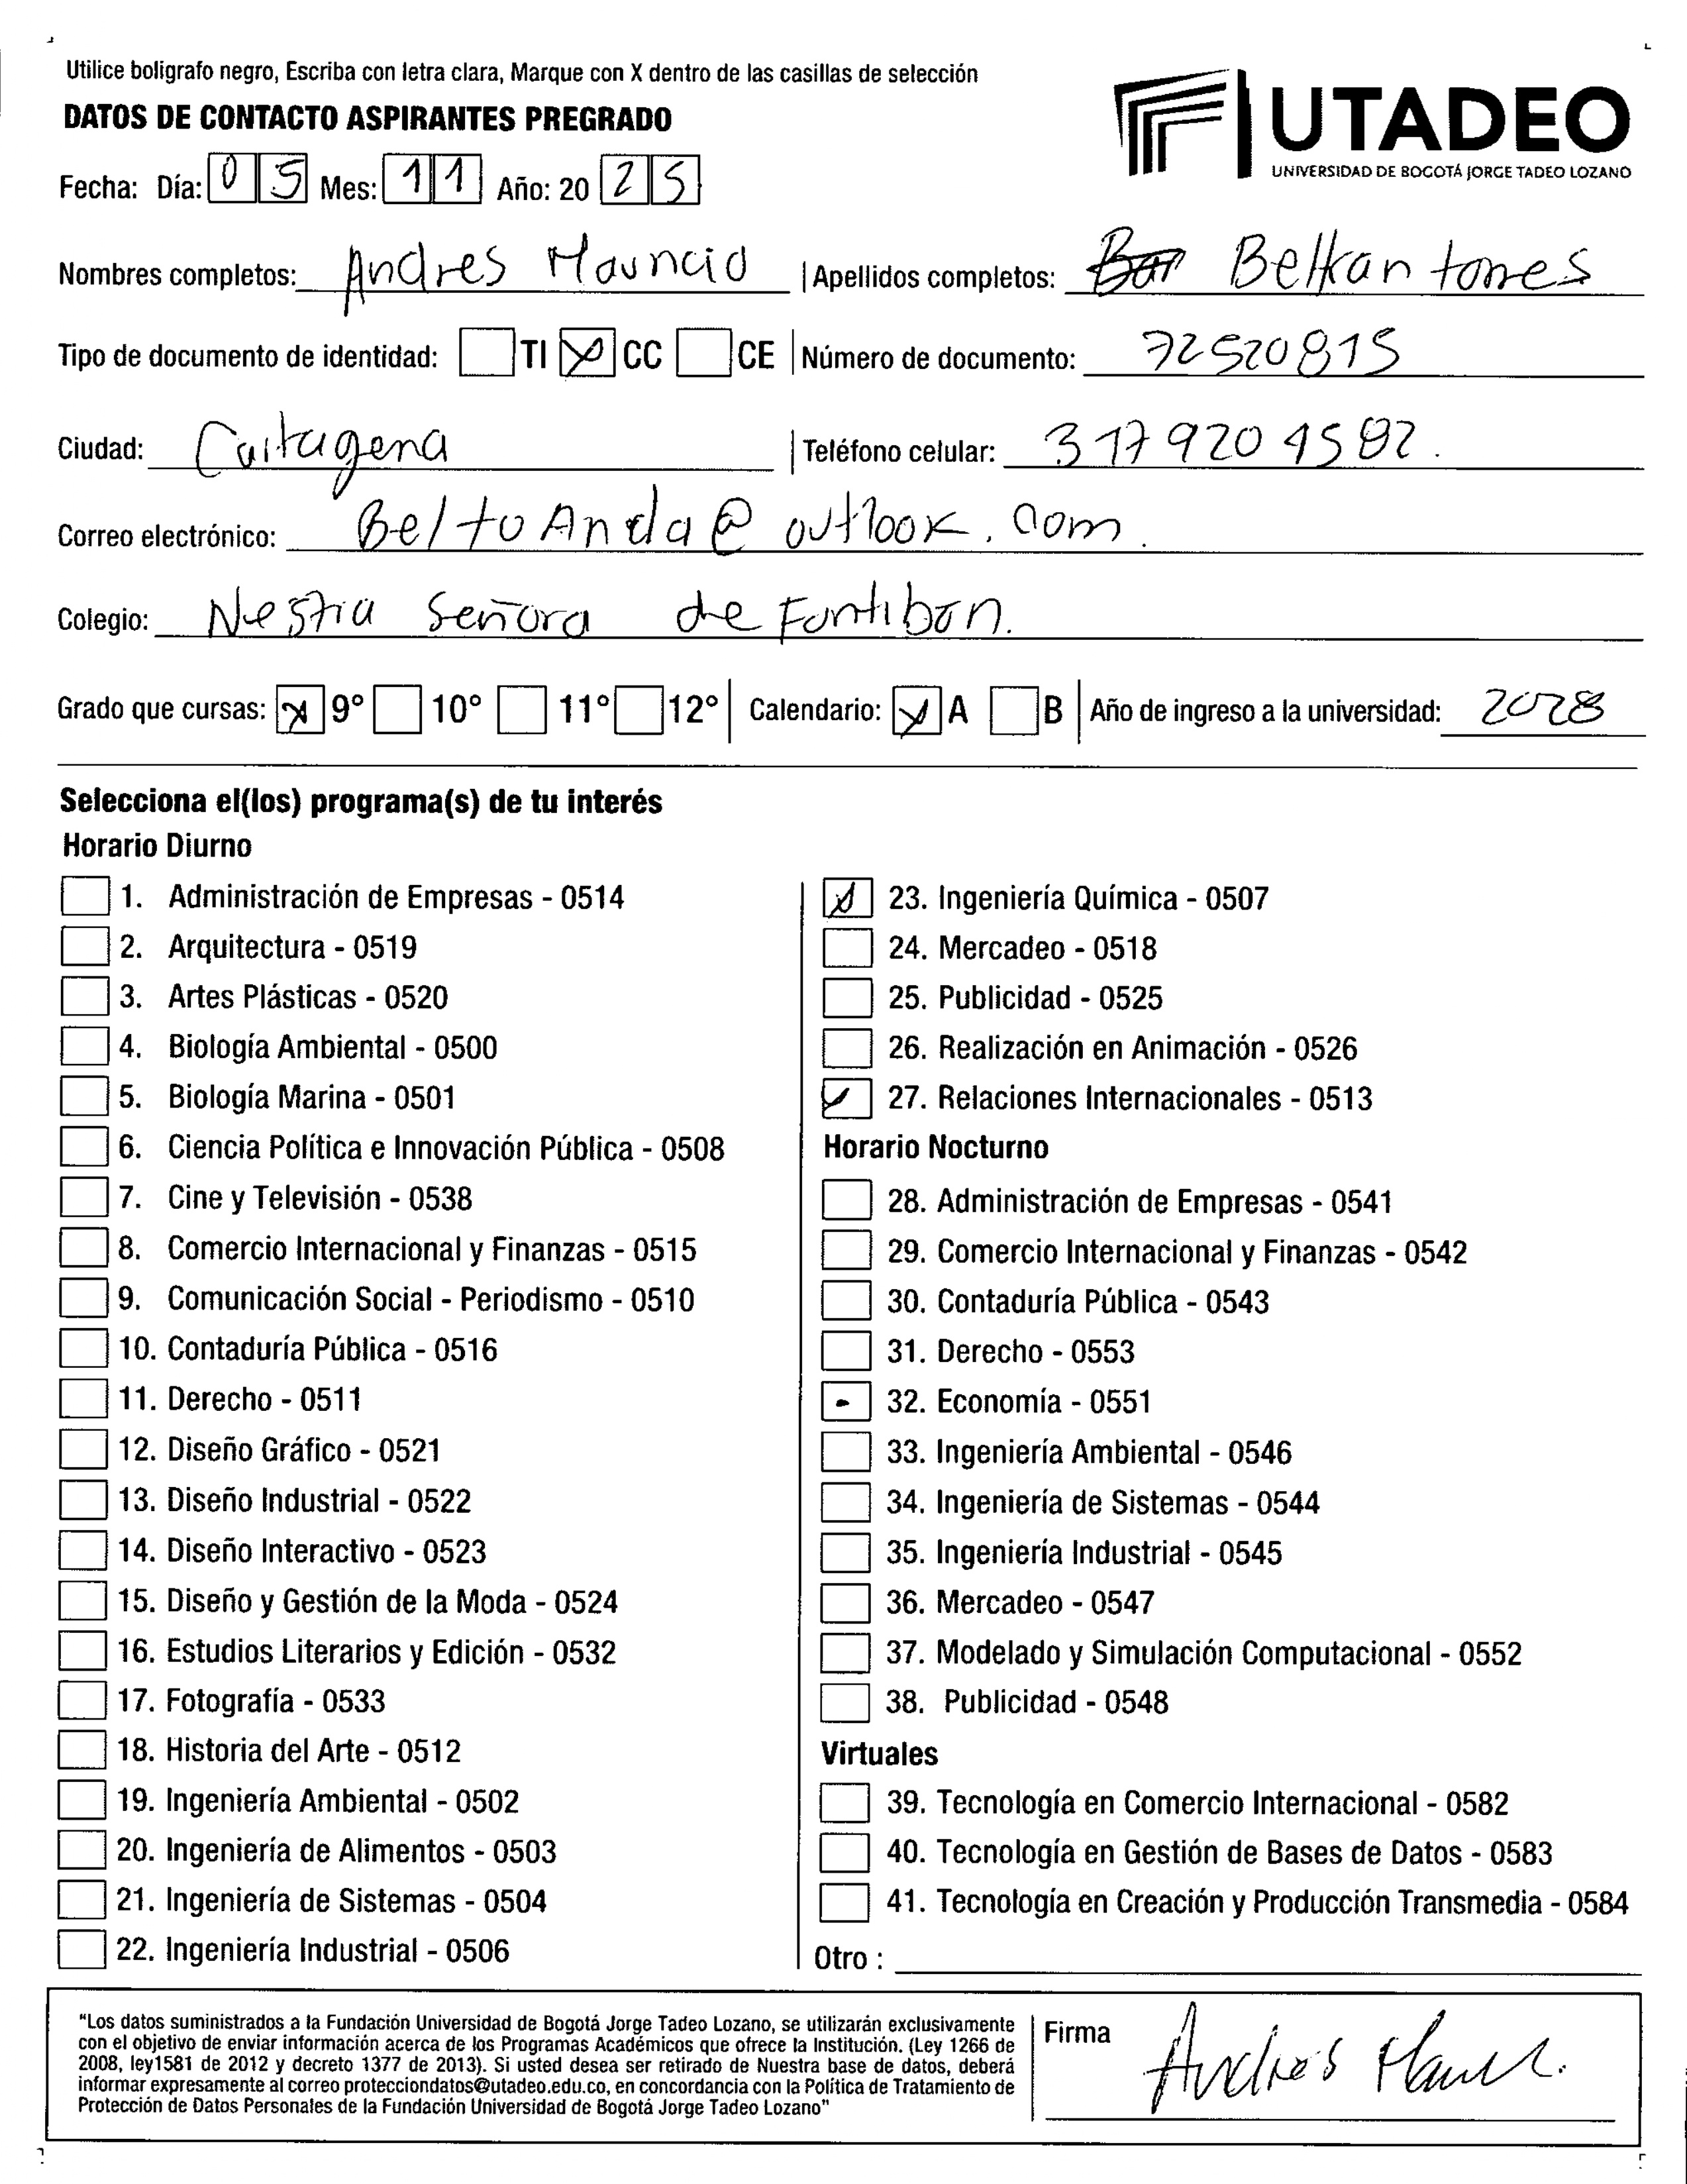 Utilice boligrafo negro, Escriba con letra clara, Marque con X dentro de las casillas de selección
DATOS DE CONTACTO ASPIRANTES PREGRADO
UTADEO
UNIVERSIDAD DE BOGOTÁ JORGE TADEO LOZANO
Fecha: Día: 05 Mes: 11 Año: 20 25
Nombres completos: Andres Mauricio | Apellidos completos: Beltran torres
Tipo de documento de identidad: TI CC CE | Número de documento: 72520815
Ciudad: Cartagena | Teléfono celular: 317 920 4582.
Correo electrónico: @outlook.com.
Colegio: Señora de Fontibon.
Grado que cursas: 9° 10° 11° 12° | Calendario: A B | Año de ingreso a la universidad: 2028
Selecciona el(los) programa(s) de tu interés
Horario Diurno
1. Administración de Empresas - 0514
2. Arquitectura - 0519
3. Artes Plásticas - 0520
4. Biología Ambiental - 0500
5. Biología Marina - 0501
6. Ciencia Política e Innovación Pública - 0508
7. Cine y Televisión - 0538
8. Comercio Internacional y Finanzas - 0515
9. Comunicación Social - Periodismo - 0510
10. Contaduría Pública - 0516
11. Derecho - 0511
12. Diseño Gráfico - 0521
13. Diseño Industrial - 0522
14. Diseño Interactivo - 0523
15. Diseño y Gestión de la Moda - 0524
16. Estudios Literarios y Edición - 0532
17. Fotografía - 0533
18. Historia del Arte - 0512
19. Ingeniería Ambiental - 0502
20. Ingeniería de Alimentos - 0503
21. Ingeniería de Sistemas - 0504
22. Ingeniería Industrial - 0506
23. Ingeniería Química - 0507
24. Mercadeo - 0518
25. Publicidad - 0525
26. Realización en Animación - 0526
27. Relaciones Internacionales - 0513
Horario Nocturno
28. Administración de Empresas - 0541
29. Comercio Internacional y Finanzas - 0542
30. Contaduría Pública - 0543
31. Derecho - 0553
32. Economía - 0551
33. Ingeniería Ambiental - 0546
34. Ingeniería de Sistemas - 0544
35. Ingeniería Industrial - 0545
36. Mercadeo - 0547
37. Modelado y Simulación Computacional - 0552
38. Publicidad - 0548
Virtuales
39. Tecnología en Comercio Internacional - 0582
40. Tecnología en Gestión de Bases de Datos - 0583
41. Tecnología en Creación y Producción Transmedia - 0584
Otro :
"Los datos suministrados a la Fundación Universidad de Bogotá Jorge Tadeo Lozano, se utilizarán exclusivamente
con el objetivo de enviar información acerca de los Programas Académicos que ofrece la Institución. (Ley 1266 de
2008, ley1581 de 2012 y decreto 1377 de 2013). Si usted desea ser retirado de Nuestra base de datos, deberá
informar expresamente al correo protecciondatos@utadeo.edu.co, en concordancia con la Política de Tratamiento de
Protección de Datos Personales de la Fundación Universidad de Bogotá Jorge Tadeo Lozano"
Firma Andres